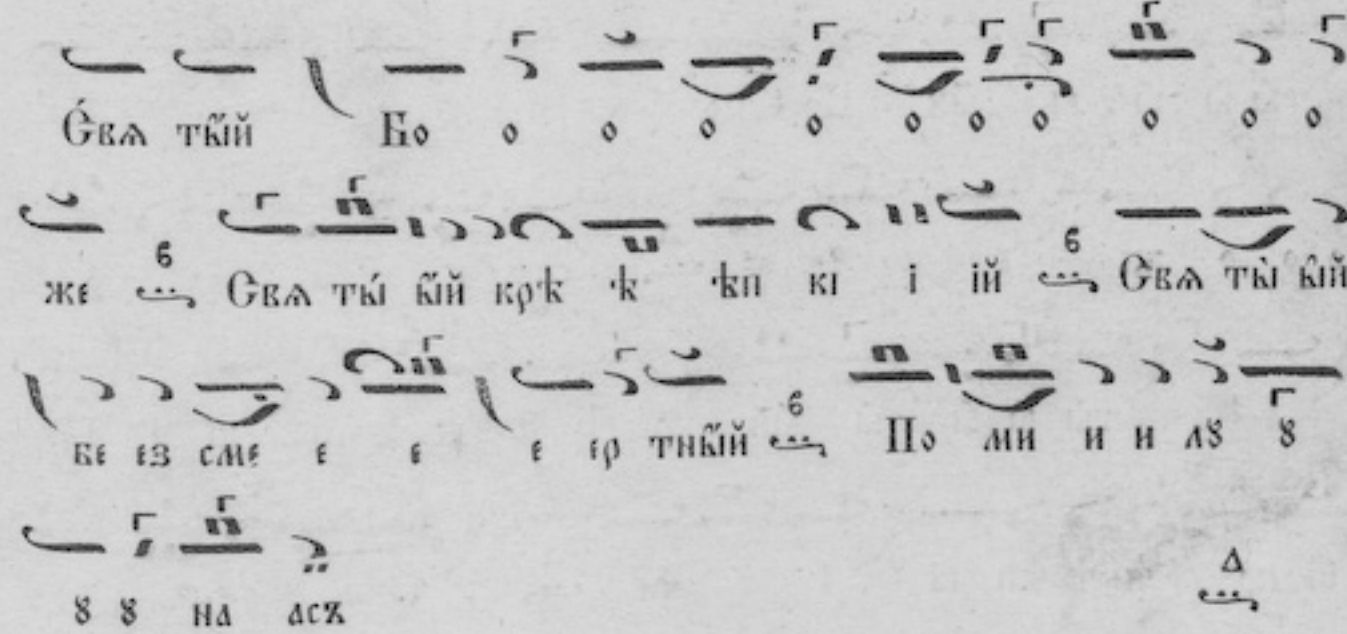 Свѧ ты́й Бо о о о о о о о о о о
же в Свѧ ты́ ы́й крѣ ѣ ѣп кі і ій в Свѧ ты̀ ы́й
Бе ез сме е е е ер тны́й в По ми и и лꙋ ꙋ
ꙋ ꙋ на асъ Δ